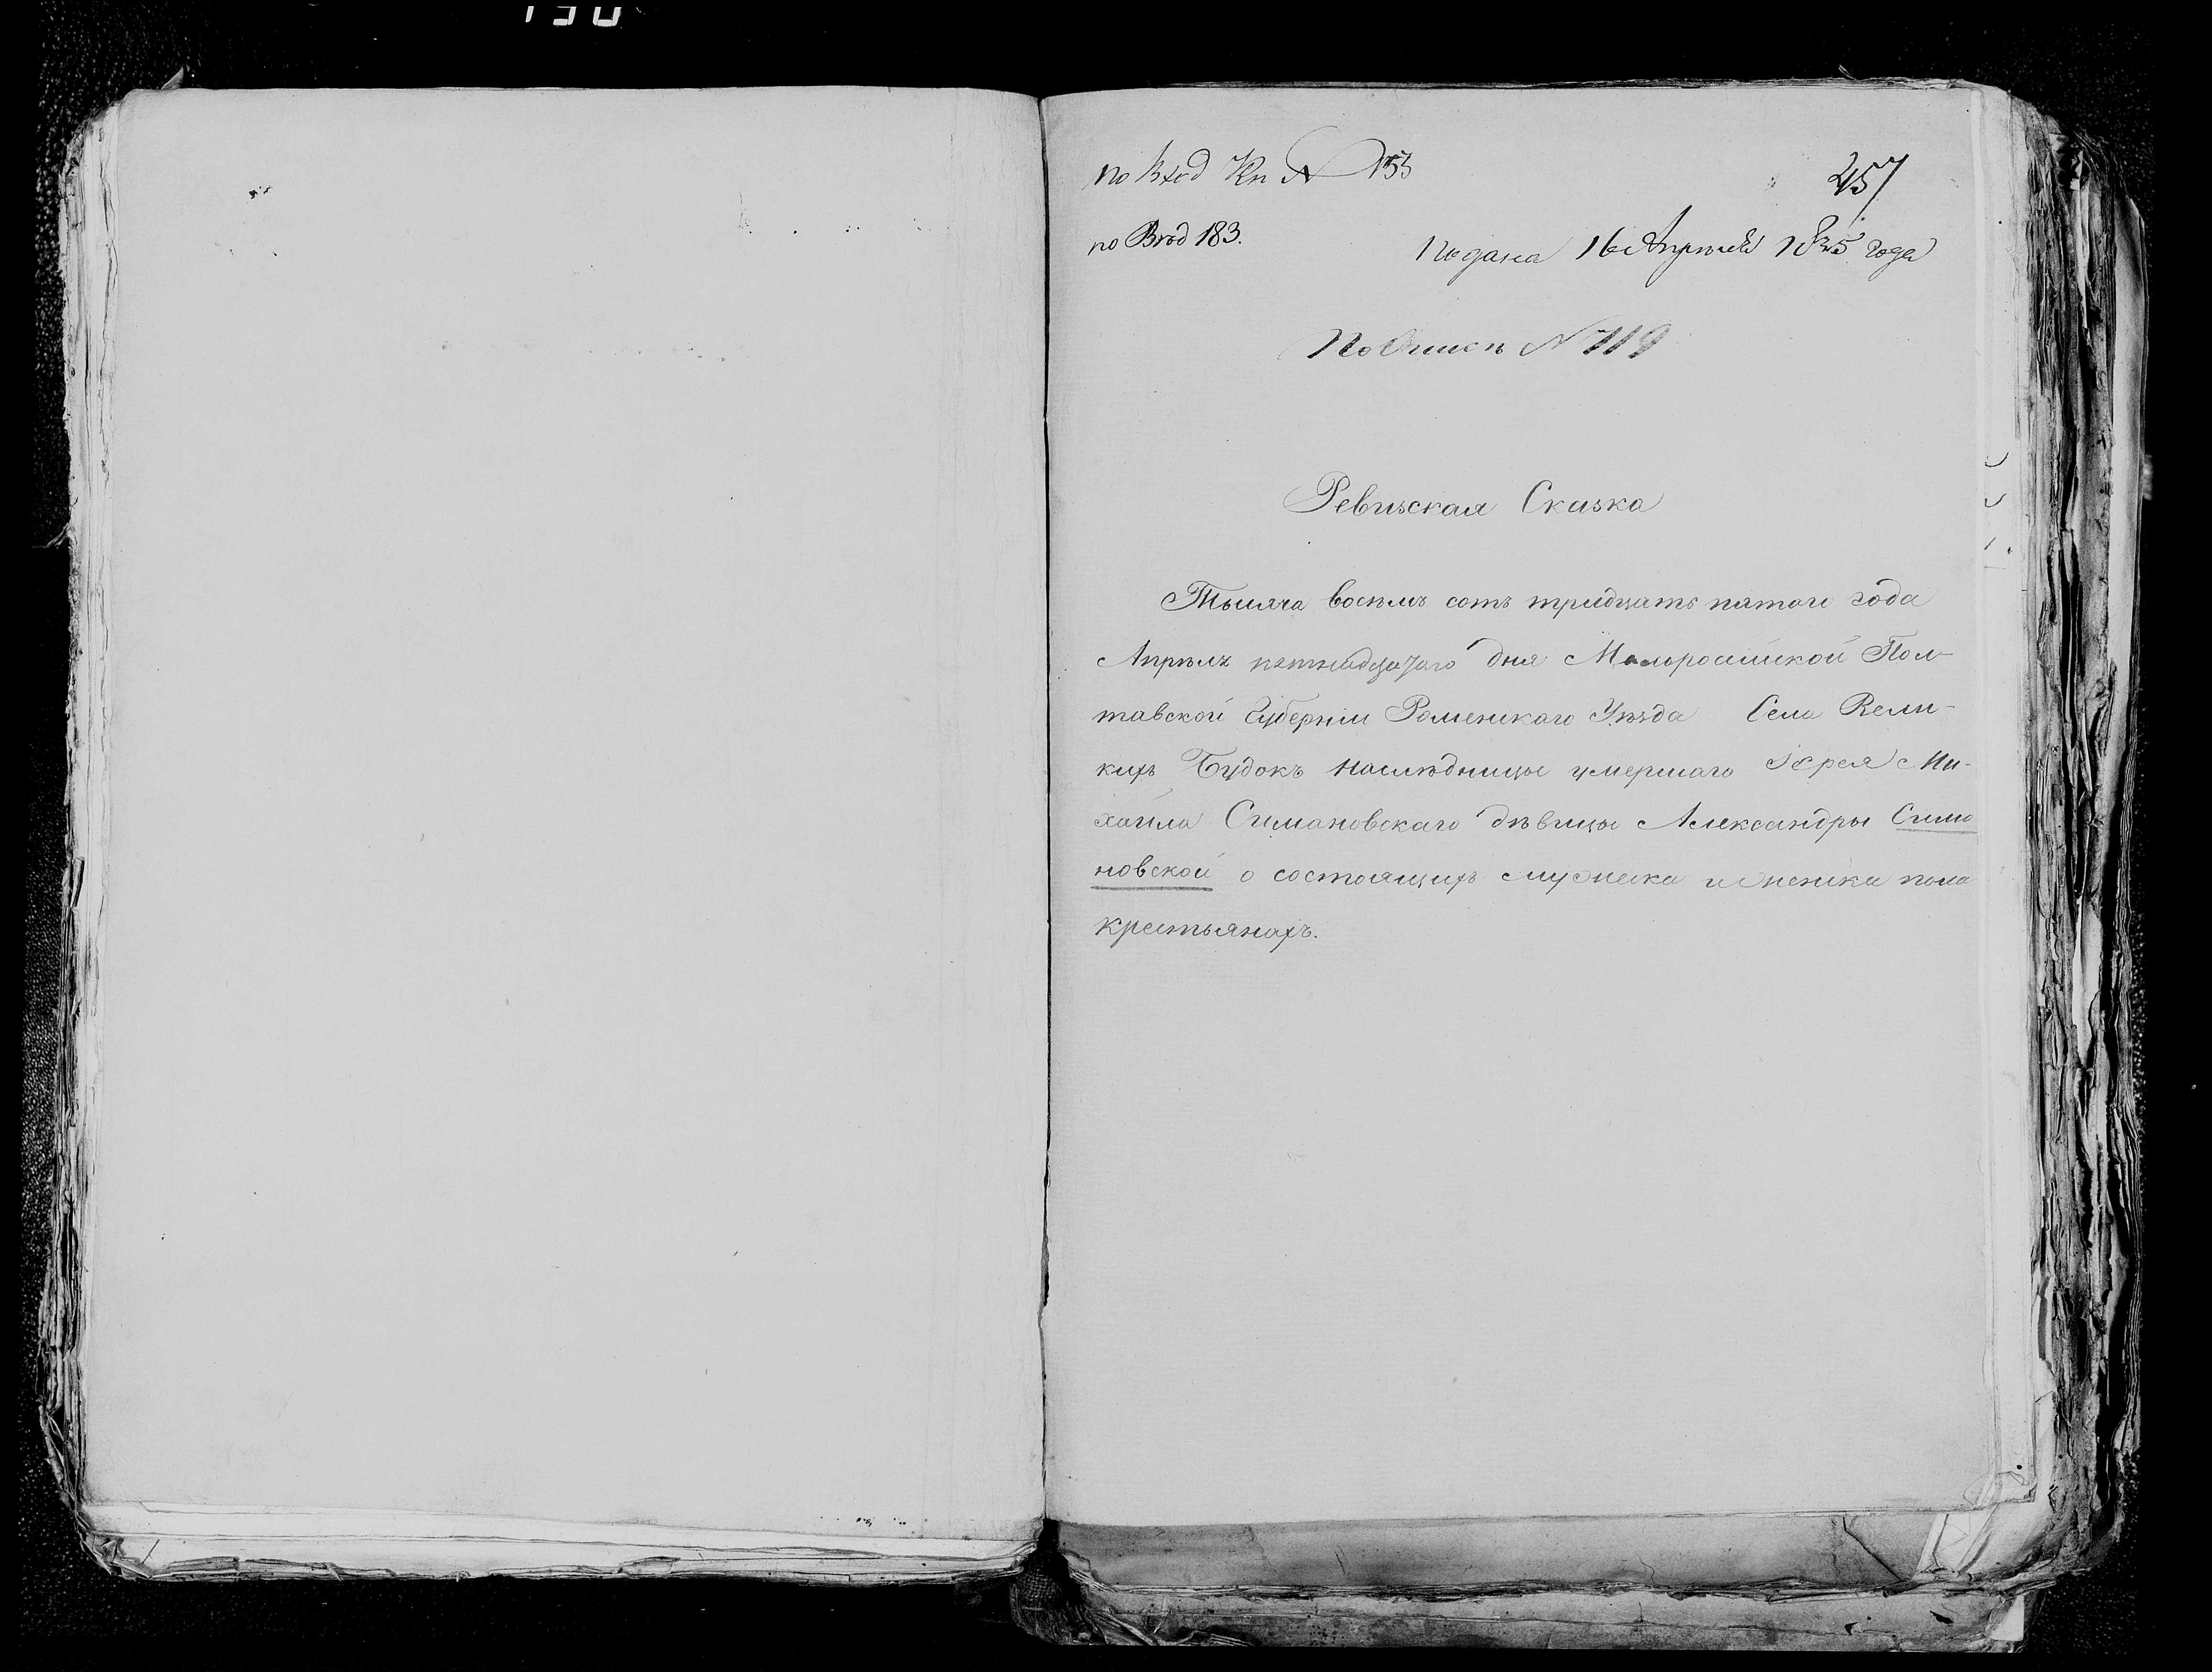 по Вход Кн № 155
457
по Вѣд 183.
Подана 16 Апрѣля 1835 года
По Описи № 719
Ревизская Сказка
Тысяча восемъ сотъ тридцать пятого года
Апрѣля пятнадцатаго дня Малоросийской Пол-
тавской Губернии Роменскаго Уѣзда Села Вели-
кихъ Будокъ наслѣдницы умершаго Іерея Ми-
хаила Симановскаго дѣвицы Александры Сима
новской о состоящихъ мужеска и женска пола
крестьянахъ.